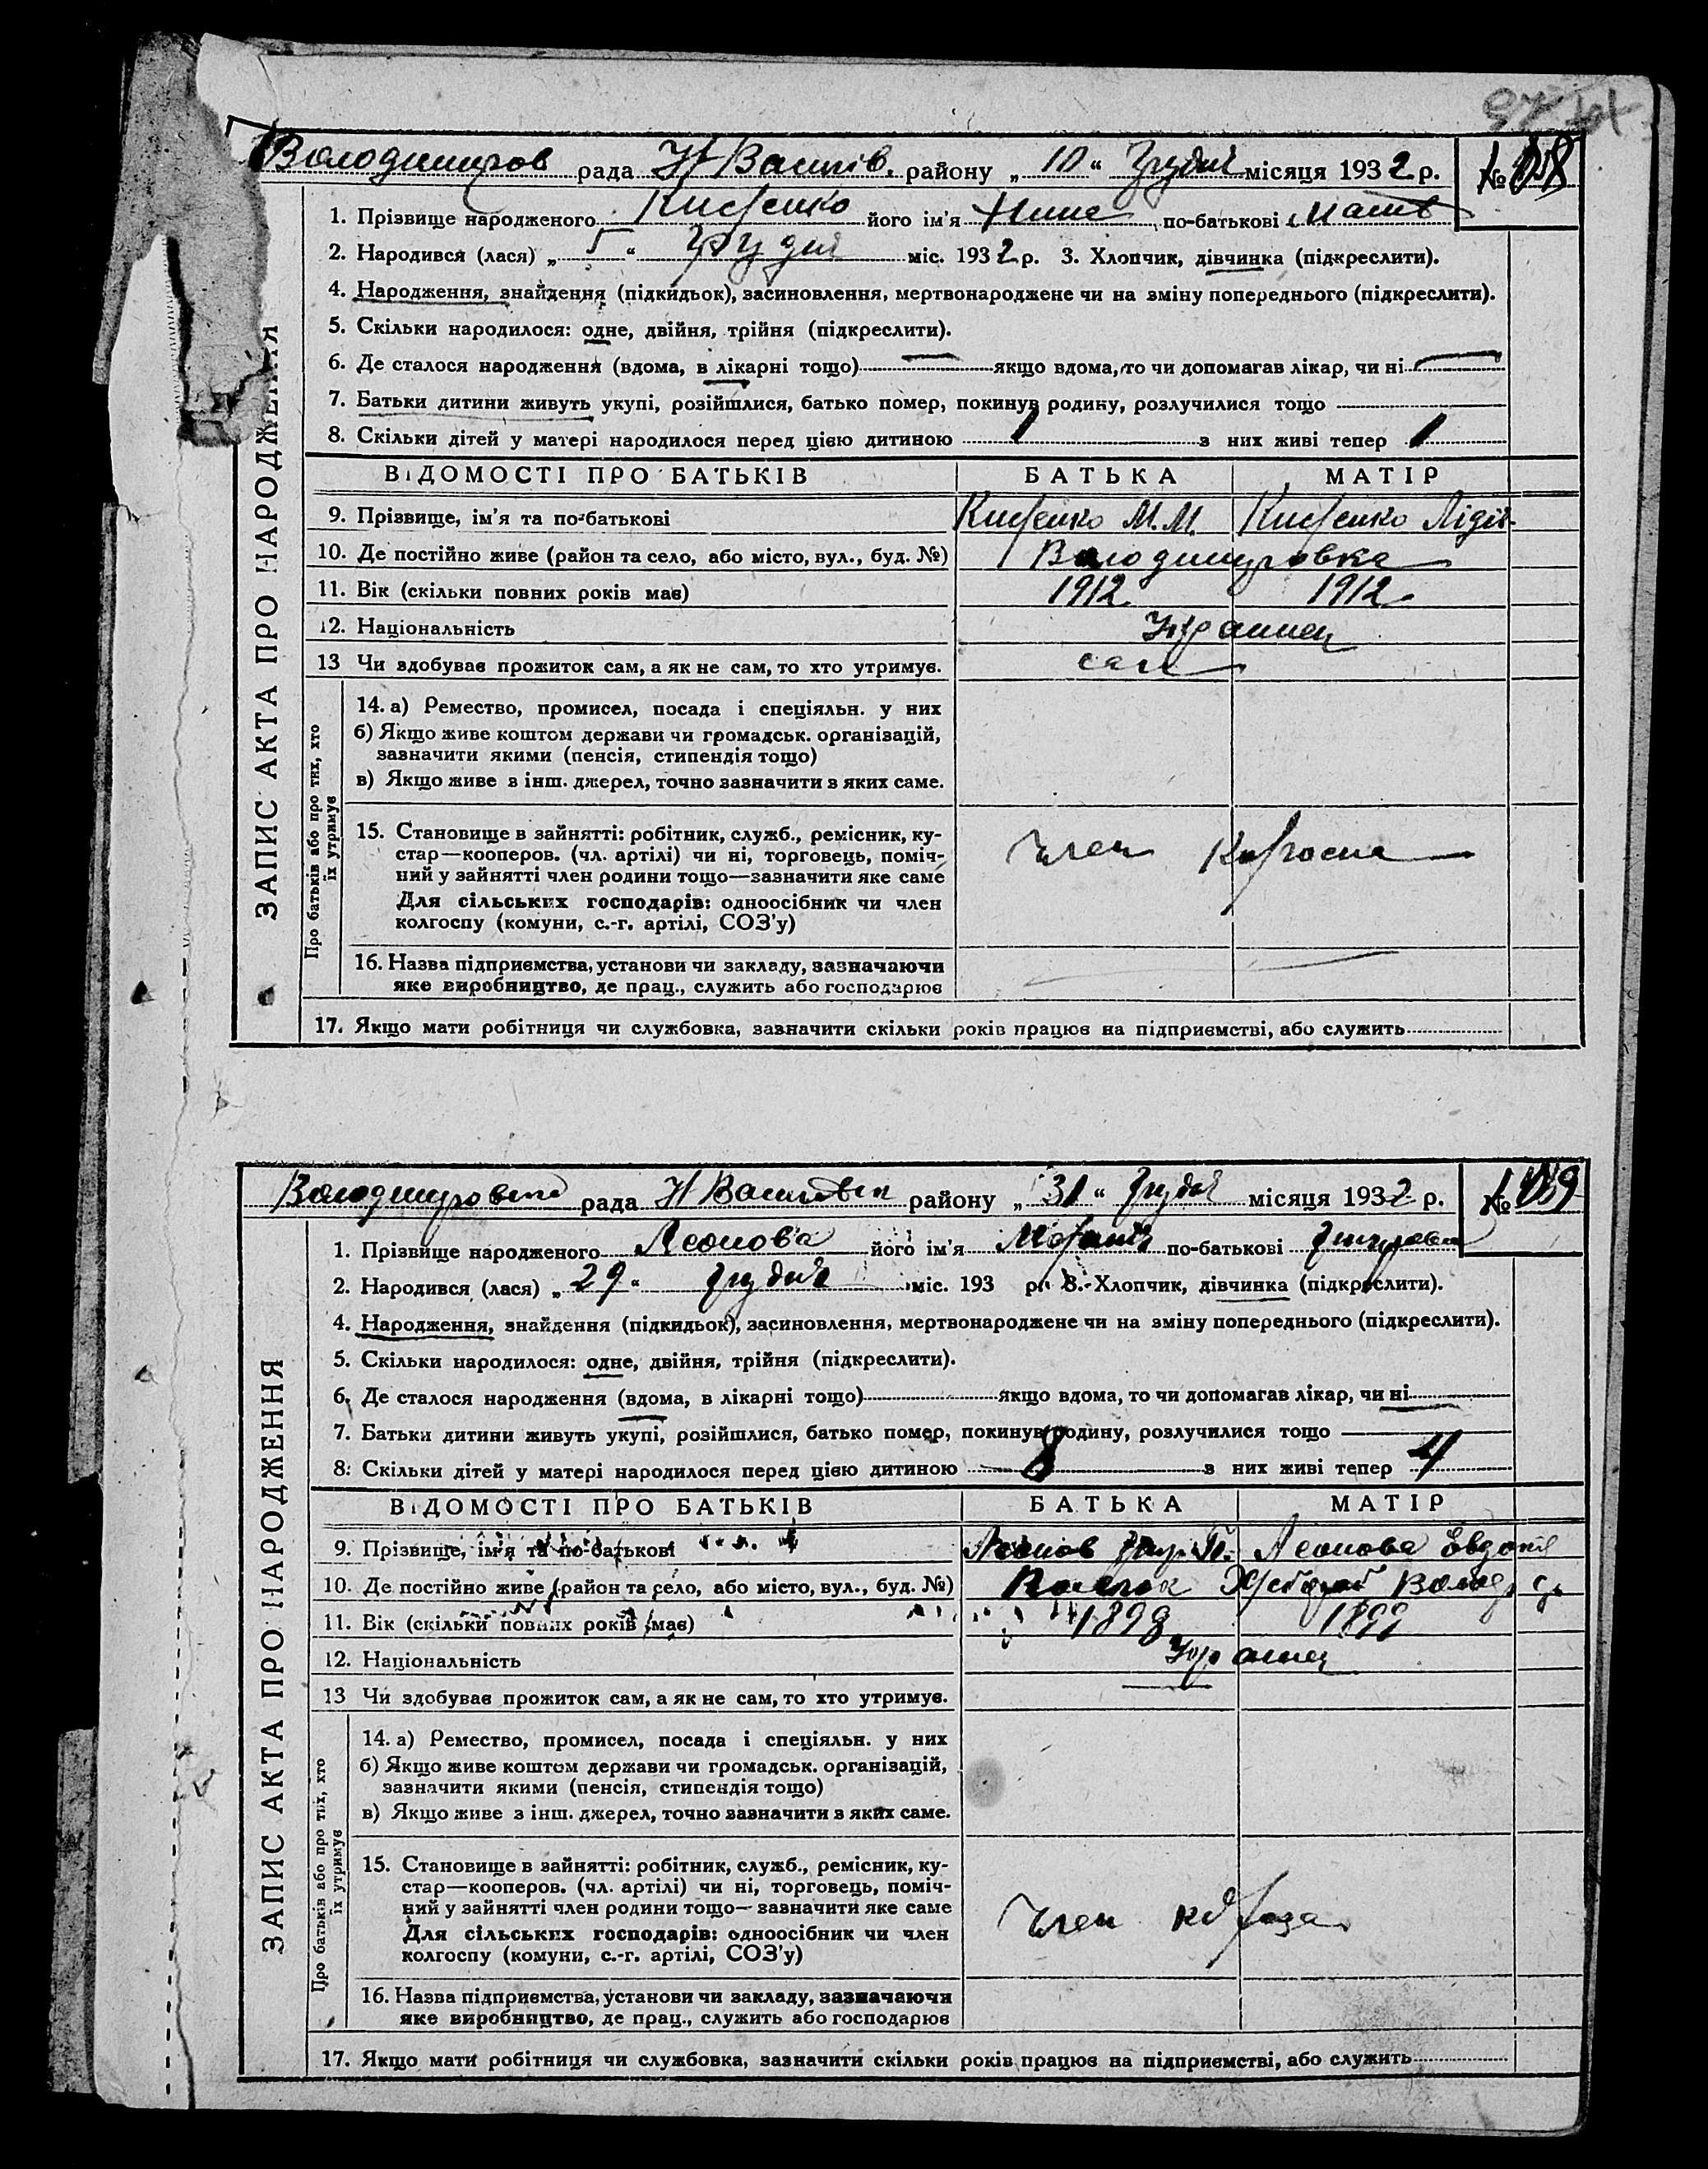 Володимиров рада Н Василів. району „ 10 “ Грудня місяця 1932 р. №
1. Прізвище народженого його ім'я Нина по-батькові
2. Народився (лася) „ 5 “ грудня міс. 1932 р. 3. Хлопчик, дівчинка (підкреслити).
4. Народження, знайдення (підкидьок), засиновлення, мертвонароджене чи на зміну попереднього (підкреслити).
5. Скільки народилося: одне, двійня, трійня (підкреслити).
6. Де сталося народження (вдома, в лікарні тощо) — якщо вдома, то чи допомагав лікар, чи ні —
7. Батьки дитини живуть укупі, розійшлися, батько помер, покинув родину, розлучилися тощо
8. Скільки дітей у матері народилося перед цією дитиною 1 з них живі тепер 1
ВІДОМОСТІ ПРО БАТЬКІВ БАТЬКА МАТІР
9. Прізвище, ім'я та по-батькові М.М. Лідія
10. Де постійно живе (район та село, або місто, вул., буд. №) Володимировка
11. Вік (скільки повних років має) 1912 1912
12. Національність Украинец
13 Чи здобуває прожиток сам, а як не сам, то хто утримує. сам
14. а) Ремество, промисел, посада і спеціяльн. у них
б) Якщо живе коштом держави чи громадськ. організацій,
зазначити якими (пенсія, стипендія тощо)
в) Якщо живе з інш. джерел, точно зазначити з яких саме.
15. Становище в зайнятті: робітник, служб., ремісник, ку-
стар—кооперов. (чл. артілі) чи ні, торговець, поміч-
ний у зайнятті член родини тощо—зазначити яке саме
Член Колгоспа
Для сільських господарів: одноосібник чи член
колгоспу (комуни, с.-г. артілі, СОЗ'у)
16. Назва підприємства, установи чи закладу, зазначаючи
яке виробництво, де прац., служить або господарює
17. Якщо мати робітниця чи службовка, зазначити скільки років працює на підприємстві, або служить
ЗАПИС АКТА ПРО НАРОДЖЕННЯ
Про батьків або про тих, хто
їх утримує
рада Н Василівськ району „ 31 “ Грудня місяця 1932 р. №
1. Прізвище народженого Леонова його ім'я по-батькові
2. Народився (лася) „ 29 “ Грудня міс. 193 р. 3. Хлопчик, дівчинка (підкреслити).
4. Народження, знайдення (підкидьок), засиновлення, мертвонароджене чи на зміну попереднього (підкреслити).
5. Скільки народилося: одне, двійня, трійня (підкреслити).
6. Де сталося народження (вдома, в лікарні тощо) якщо вдома, то чи допомагав лікар, чи ні
7. Батьки дитини живуть укупі, розійшлися, батько помер, покинув родину, розлучилися тощо
8. Скільки дітей у матері народилося перед цією дитиною 8 з них живі тепер 4
ВІДОМОСТІ ПРО БАТЬКІВ БАТЬКА МАТІР
9. Прізвище, ім'я та по-батькові Леонов Леонова Євдокія
10. Де постійно живе (район та село, або місто, вул., буд. №)
11. Вік (скільки повних років має) 1898 1899
12. Національність Украинец
13 Чи здобуває прожиток сам, а як не сам, то хто утримує.
14. а) Ремество, промисел, посада і спеціяльн. у них
б) Якщо живе коштом держави чи громадськ. організацій,
зазначити якими (пенсія, стипендія тощо)
в) Якщо живе з інш. джерел, точно зазначити з яких саме.
15. Становище в зайнятті: робітник, служб., ремісник, ку-
стар—кооперов. (чл. артілі) чи ні, торговець, поміч-
ний у зайнятті член родини тощо—зазначити яке саме
Член
Для сільських господарів: одноосібник чи член
колгоспу (комуни, с.-г. артілі, СОЗ'у)
16. Назва підприємства, установи чи закладу, зазначаючи
яке виробництво, де прац., служить або господарює
17. Якщо мати робітниця чи службовка, зазначити скільки років працює на підприємстві, або служить
ЗАПИС АКТА ПРО НАРОДЖЕННЯ
Про батьків або про тих, хто
їх утримує